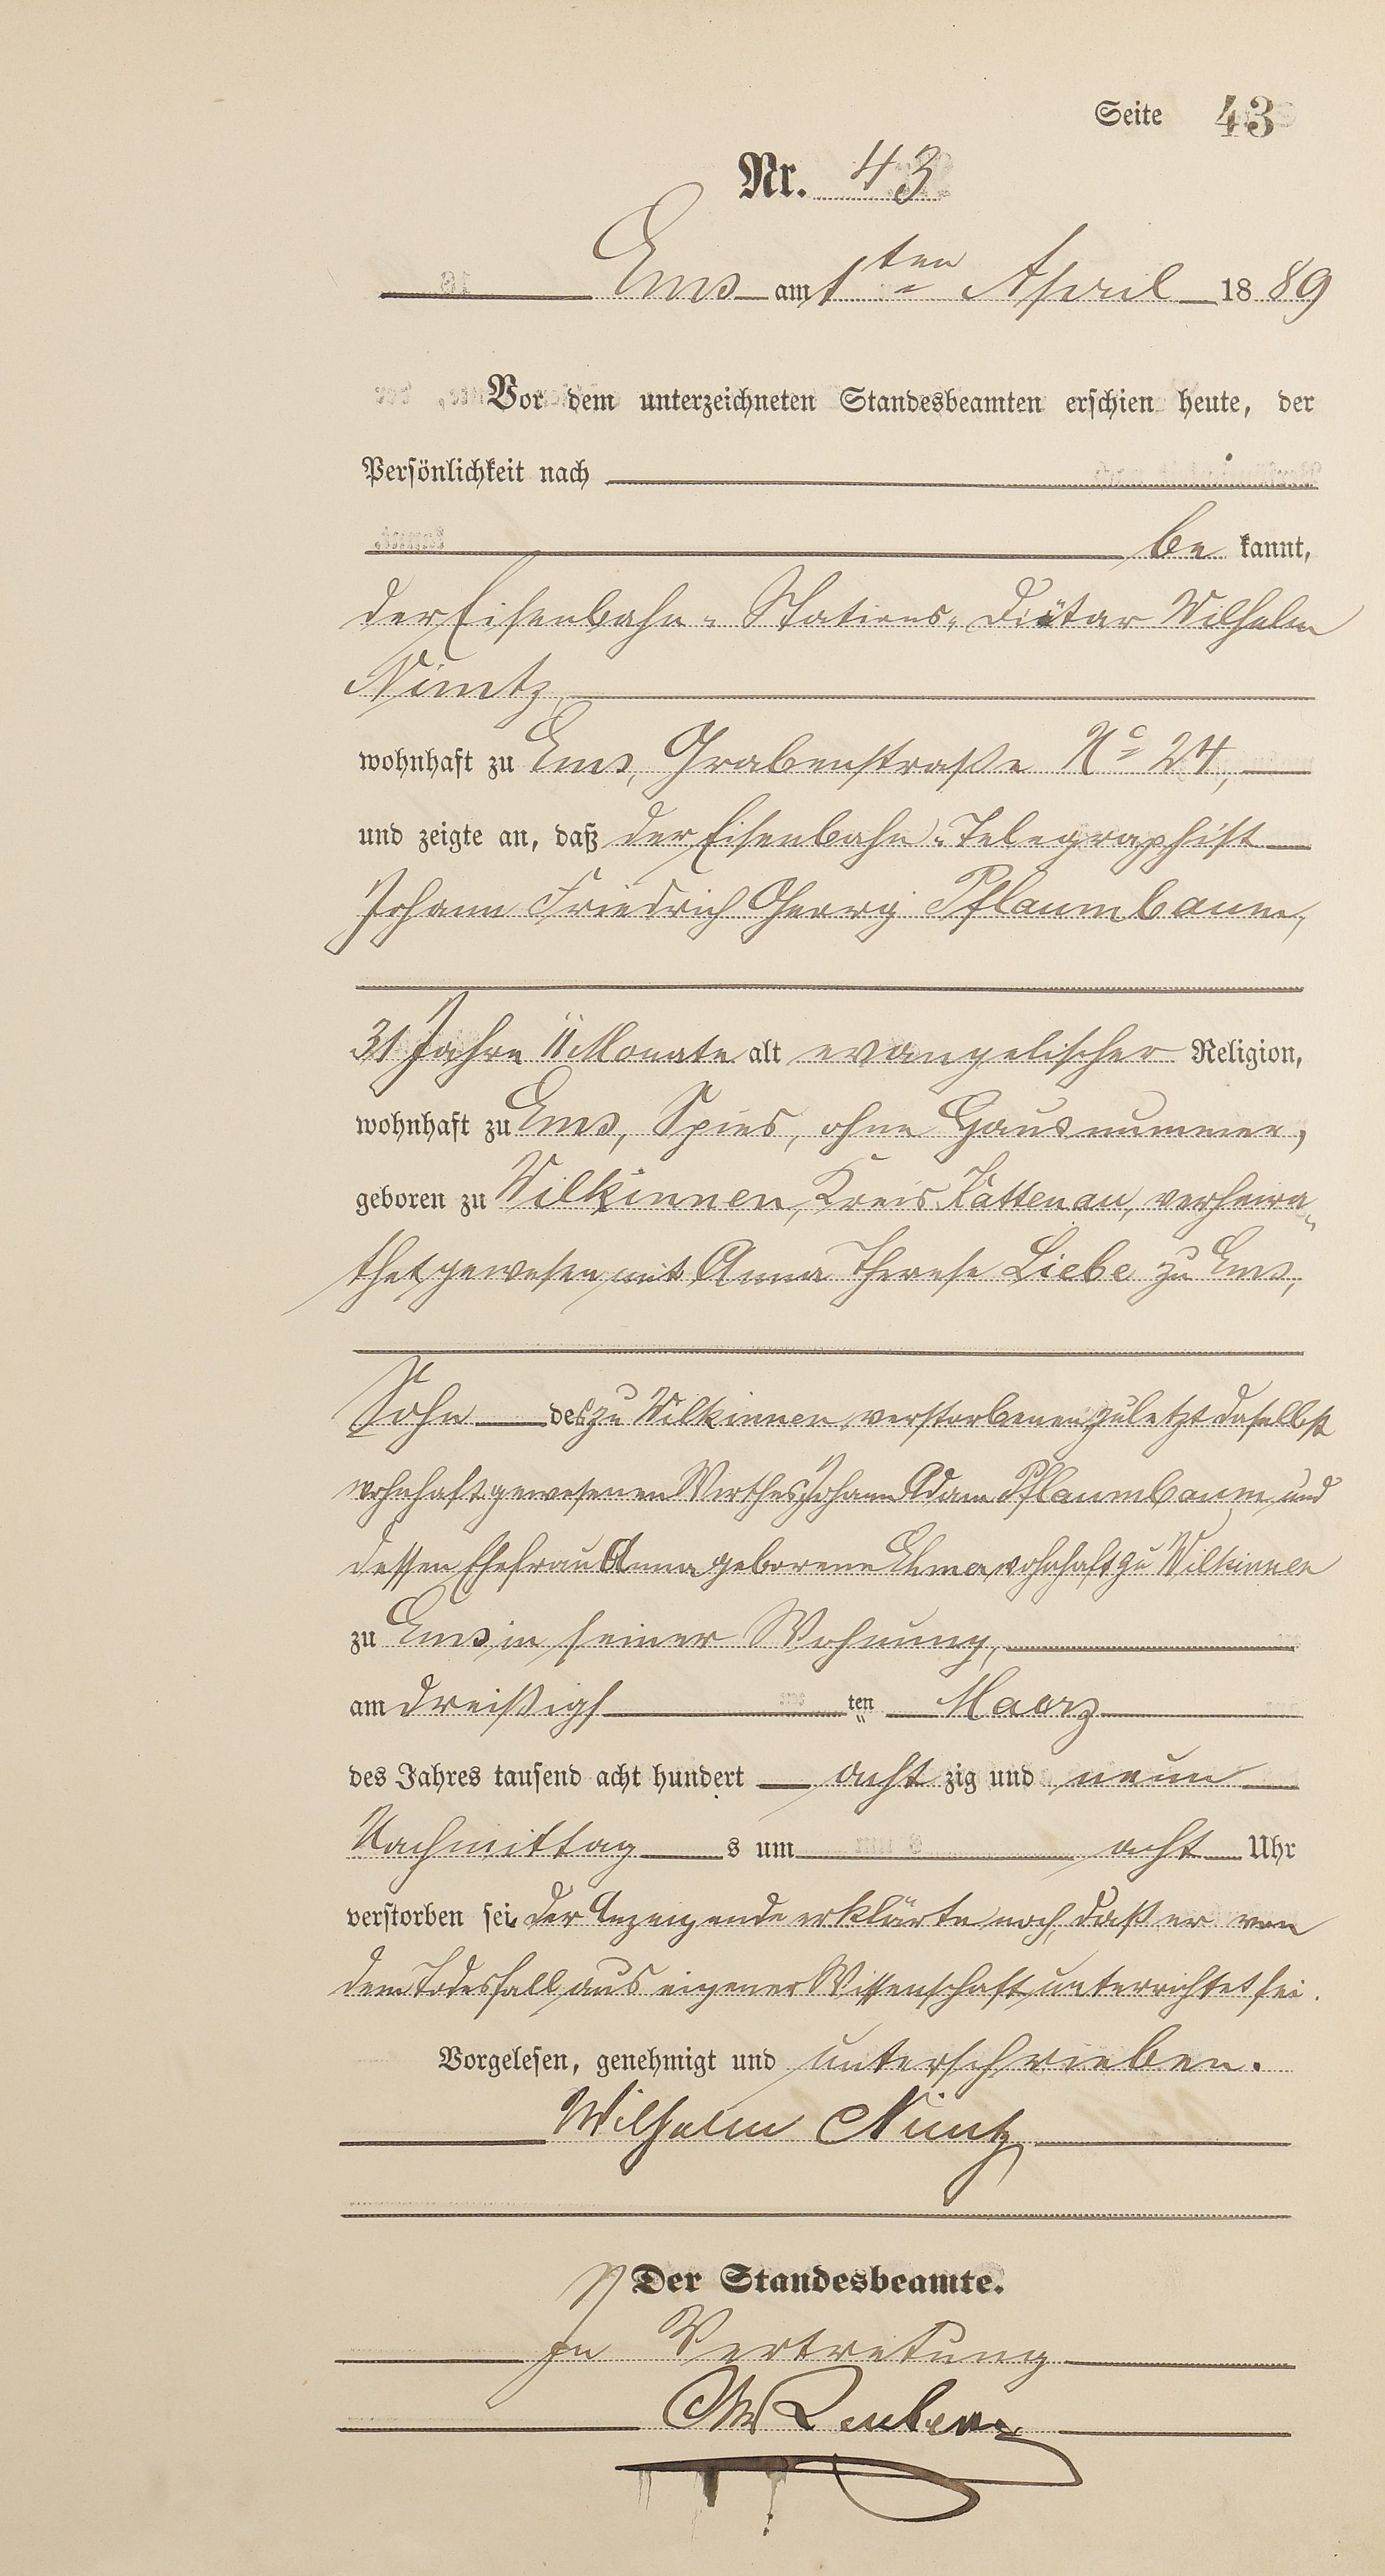 Seite 43
Nr. 43
Ems am 1ten April 1889
Vor dem unterzeichneten Standesbeamten erschien heute, der
Persönlichkeit nach
be kannt,
der Eisenbahn-Stations-Diätar Wilhelm
Nimtz
wohnhaft zu Ems, Grabenstraße No 24,
und zeigte an, daß der Eisenbahn-Telegraphist
Johann Friedrich Georg Pflaumbaum,
31 Jahre 11 Monate alt evangelischer Religion,
wohnhaft zu Ems, Spies, ohne Hausnummer,
geboren zu Wilkinnen, Kreis Kattenau, verheira-
thet gewesen mit Anna Therese Liebe zu Ems,
Sohn des zu Wilkinnen verstorbenen zuletzt daselbst
wohnhaft gewesenen Wirthes Johann Adam Pflaumbaum und
dessen Ehefrau Anna geborene wohnhaft zu Wilkinnen
zu Ems in seiner Wohnung,
am dreißigs ten Maerz
des Jahres tausend acht hundert acht zig und neun
Nachmittag s um acht Uhr
verstorben sei. Der Anzeigende erklärte noch, daß er von
dem Todesfall aus eigener Wissenschaft unterrichtet sei.
Vorgelesen, genehmigt und unterschrieben.
Wilhelm Nimtz
Der Standesbeamte.
In Vertretung